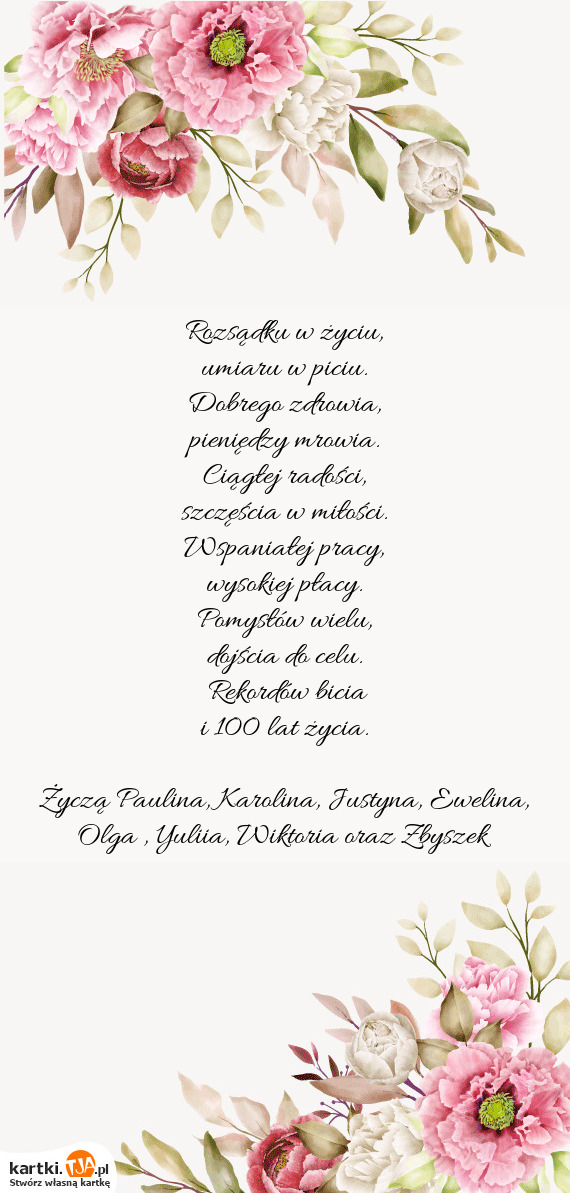 Rozsądku w życiu,
umiaru w piciu.
Dobrego zdrowia,
pieniędzy mrowia.
Ciągłej radości,
szczęścia w miłości.
Wspaniałej pracy,
wysokiej płacy.
Pomysłów wielu,
dojścia do celu.
Rekordów bicia
i 100 lat życia.
Życzą Paulina, Karolina, Justyna, Ewelina,
Olga , Yuliia, Wiktoria oraz Zbyszek
kartki.TJA.pl
Stwórz własną kartkę